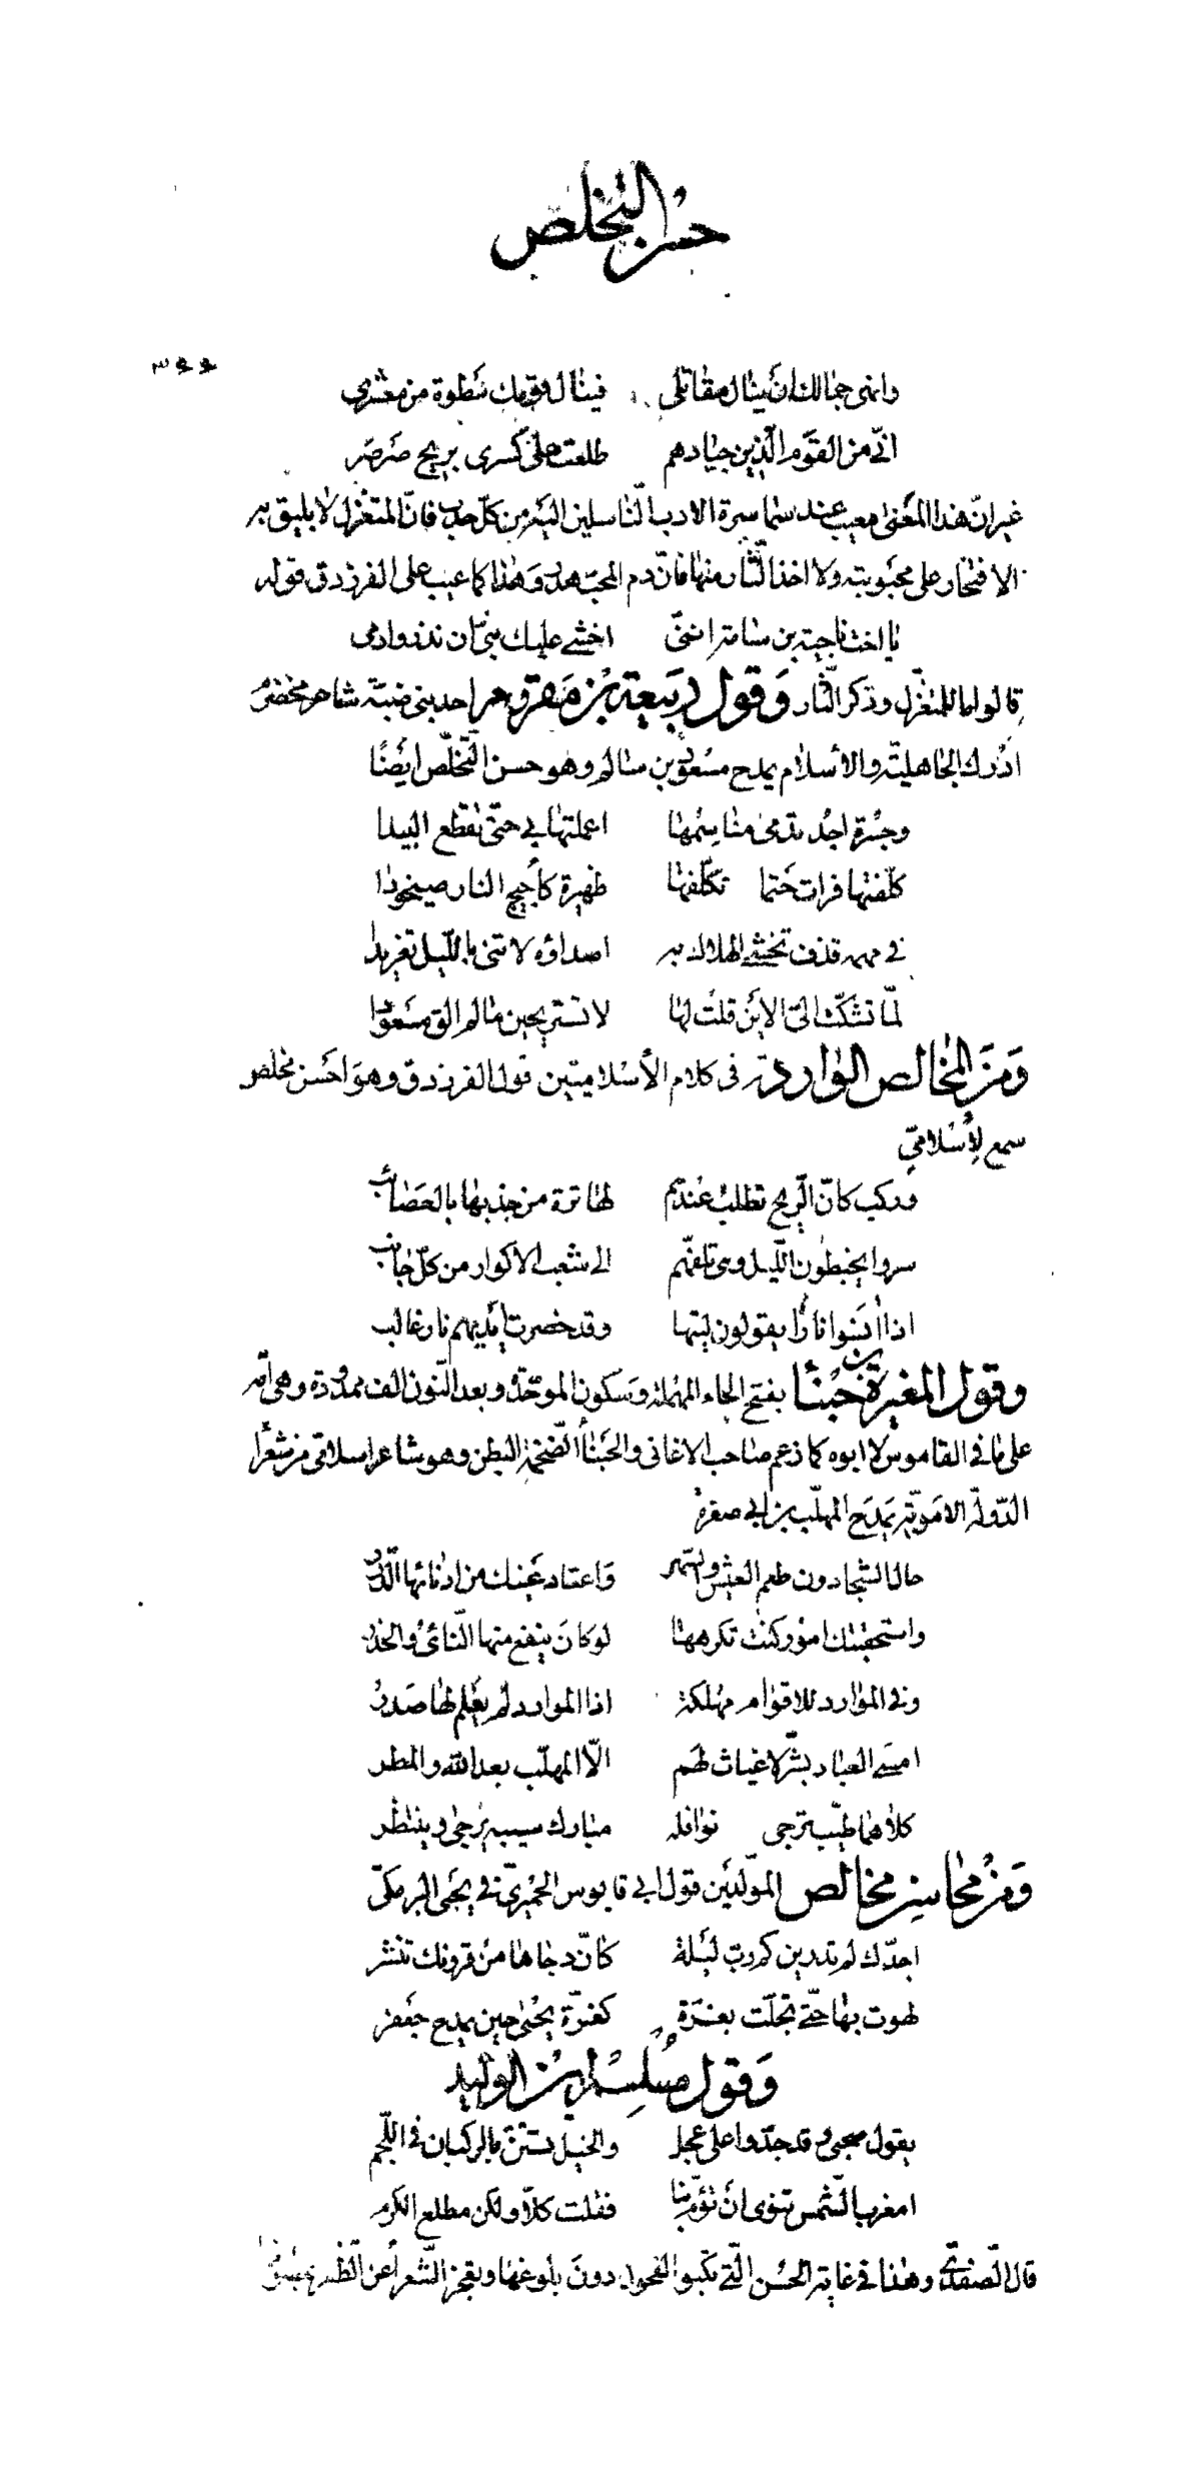 حسن التخلص
٣٤٤
وانهى جمالك ان ينال مقاتلى فينال قومك سطوة من معشرى
انّى من القوم الّذين جيادهم طلعت على كسرى بريح صرصر
غير انّ هذا المعنى معيب عند سماسرة الادب النّاسلين اليه من كلّ حدب فانّ المتغزل لا يليق به
الافتخار على محبوبته ولا اخذ الثّار منها فانّ دم المحبّ هدر وهذا كما عيب على الفرزدق قوله
يا اخت ناجية بن سامة انّنى اخشى عليك بنىّ ان نذروا دمى
قالوا ما للمتغزّل وذكر الثّار وقول ربيعة بن مقروم احد بنى ضبّة شاعر مخضرم
ادرك الجاهليّة والأسلام يمدح مسعود بن سالم وهو حسن التّخلّص ايضًا
وجسرة اجد تدمى مناسمها اعملتها بى حتّى تقطع البيدا
كلّفتها فرات حتما تكلّفها ظهيرة كأجيج النار صيخودا
فى مهمه قذف تخشى الهلاك به اصداؤه لا تنى بالليل تغريدا
لمّا تشكّت الىّ الاين قلت لها لا تستريحين ما لم الق مسعودا
ومن المخالص الواردة فى كلام الأسلاميّين قول الفرزدق وهو احسن مخلص
سمع لأسلامىّ
وركب كانّ الرّيح تطلب عندهم لها ترة من جذبها بالعصائب
سروا يخبطون اللّيل وهى تلفّهم الى شعب الاكوار من كلّ جانب
اذا انسوا نارًا يقولون ليتها وقد خصرت ايديهم نار غالب
وقول المغيرة بن حبنا بفتح الحاء المهملة وسكون الموحّدة وبعد النّون الف ممدودة وهى امّه
على ما فى القاموس لا ابوه كما زعم صاحب الاغانى والحبنأ الضّخمة البطن وهو شاعر اسلامى من شعرأ
الدّولة الامويّة يمدح المهلّب بن ابى صفرة
حال الشجا دون طعم العيش والسّهر واعتاد عينك من ادمانها الدّرر
واستحقبتك امور كنت تكرهها لو كان ينفع منها النّائى والحذر
وفى الموارد للاقوام مهلكة اذا الموارد لم يعلم لها صدر
امسى العباد بشرّ لا غياث لهم الّا المهلّب بعد الله والمطر
كلاهما طيّب ترجى نوافله مبارك سيبه يرجى وينتظر
ومن محاسن مخالص المولّدين قول ابى قابوس الحميرىّ فى يحيى البرمكىّ
اجدّك لم تدرين كم ربّ ليلة كانّ دجاها من قرونك تنشر
لهوت بها حتّى تجلّت بغرّة كغرّة يحيى حين يمدح جعفر
وقول مسلم بن الوليد
يقول صحبى وقد جدّوا على عجل والخيل تستنّ بالركبان فى اللّجم
امغرب الشّمس تنوى ان تؤمّ بنا فقلت كلّا ولكن مطلع الكرم
قال الصّفدىّ وهذا فى غاية الحسن الّتى تكبو الفحول دون بلوغها ويعجز الشّعرأ عن الظّفر